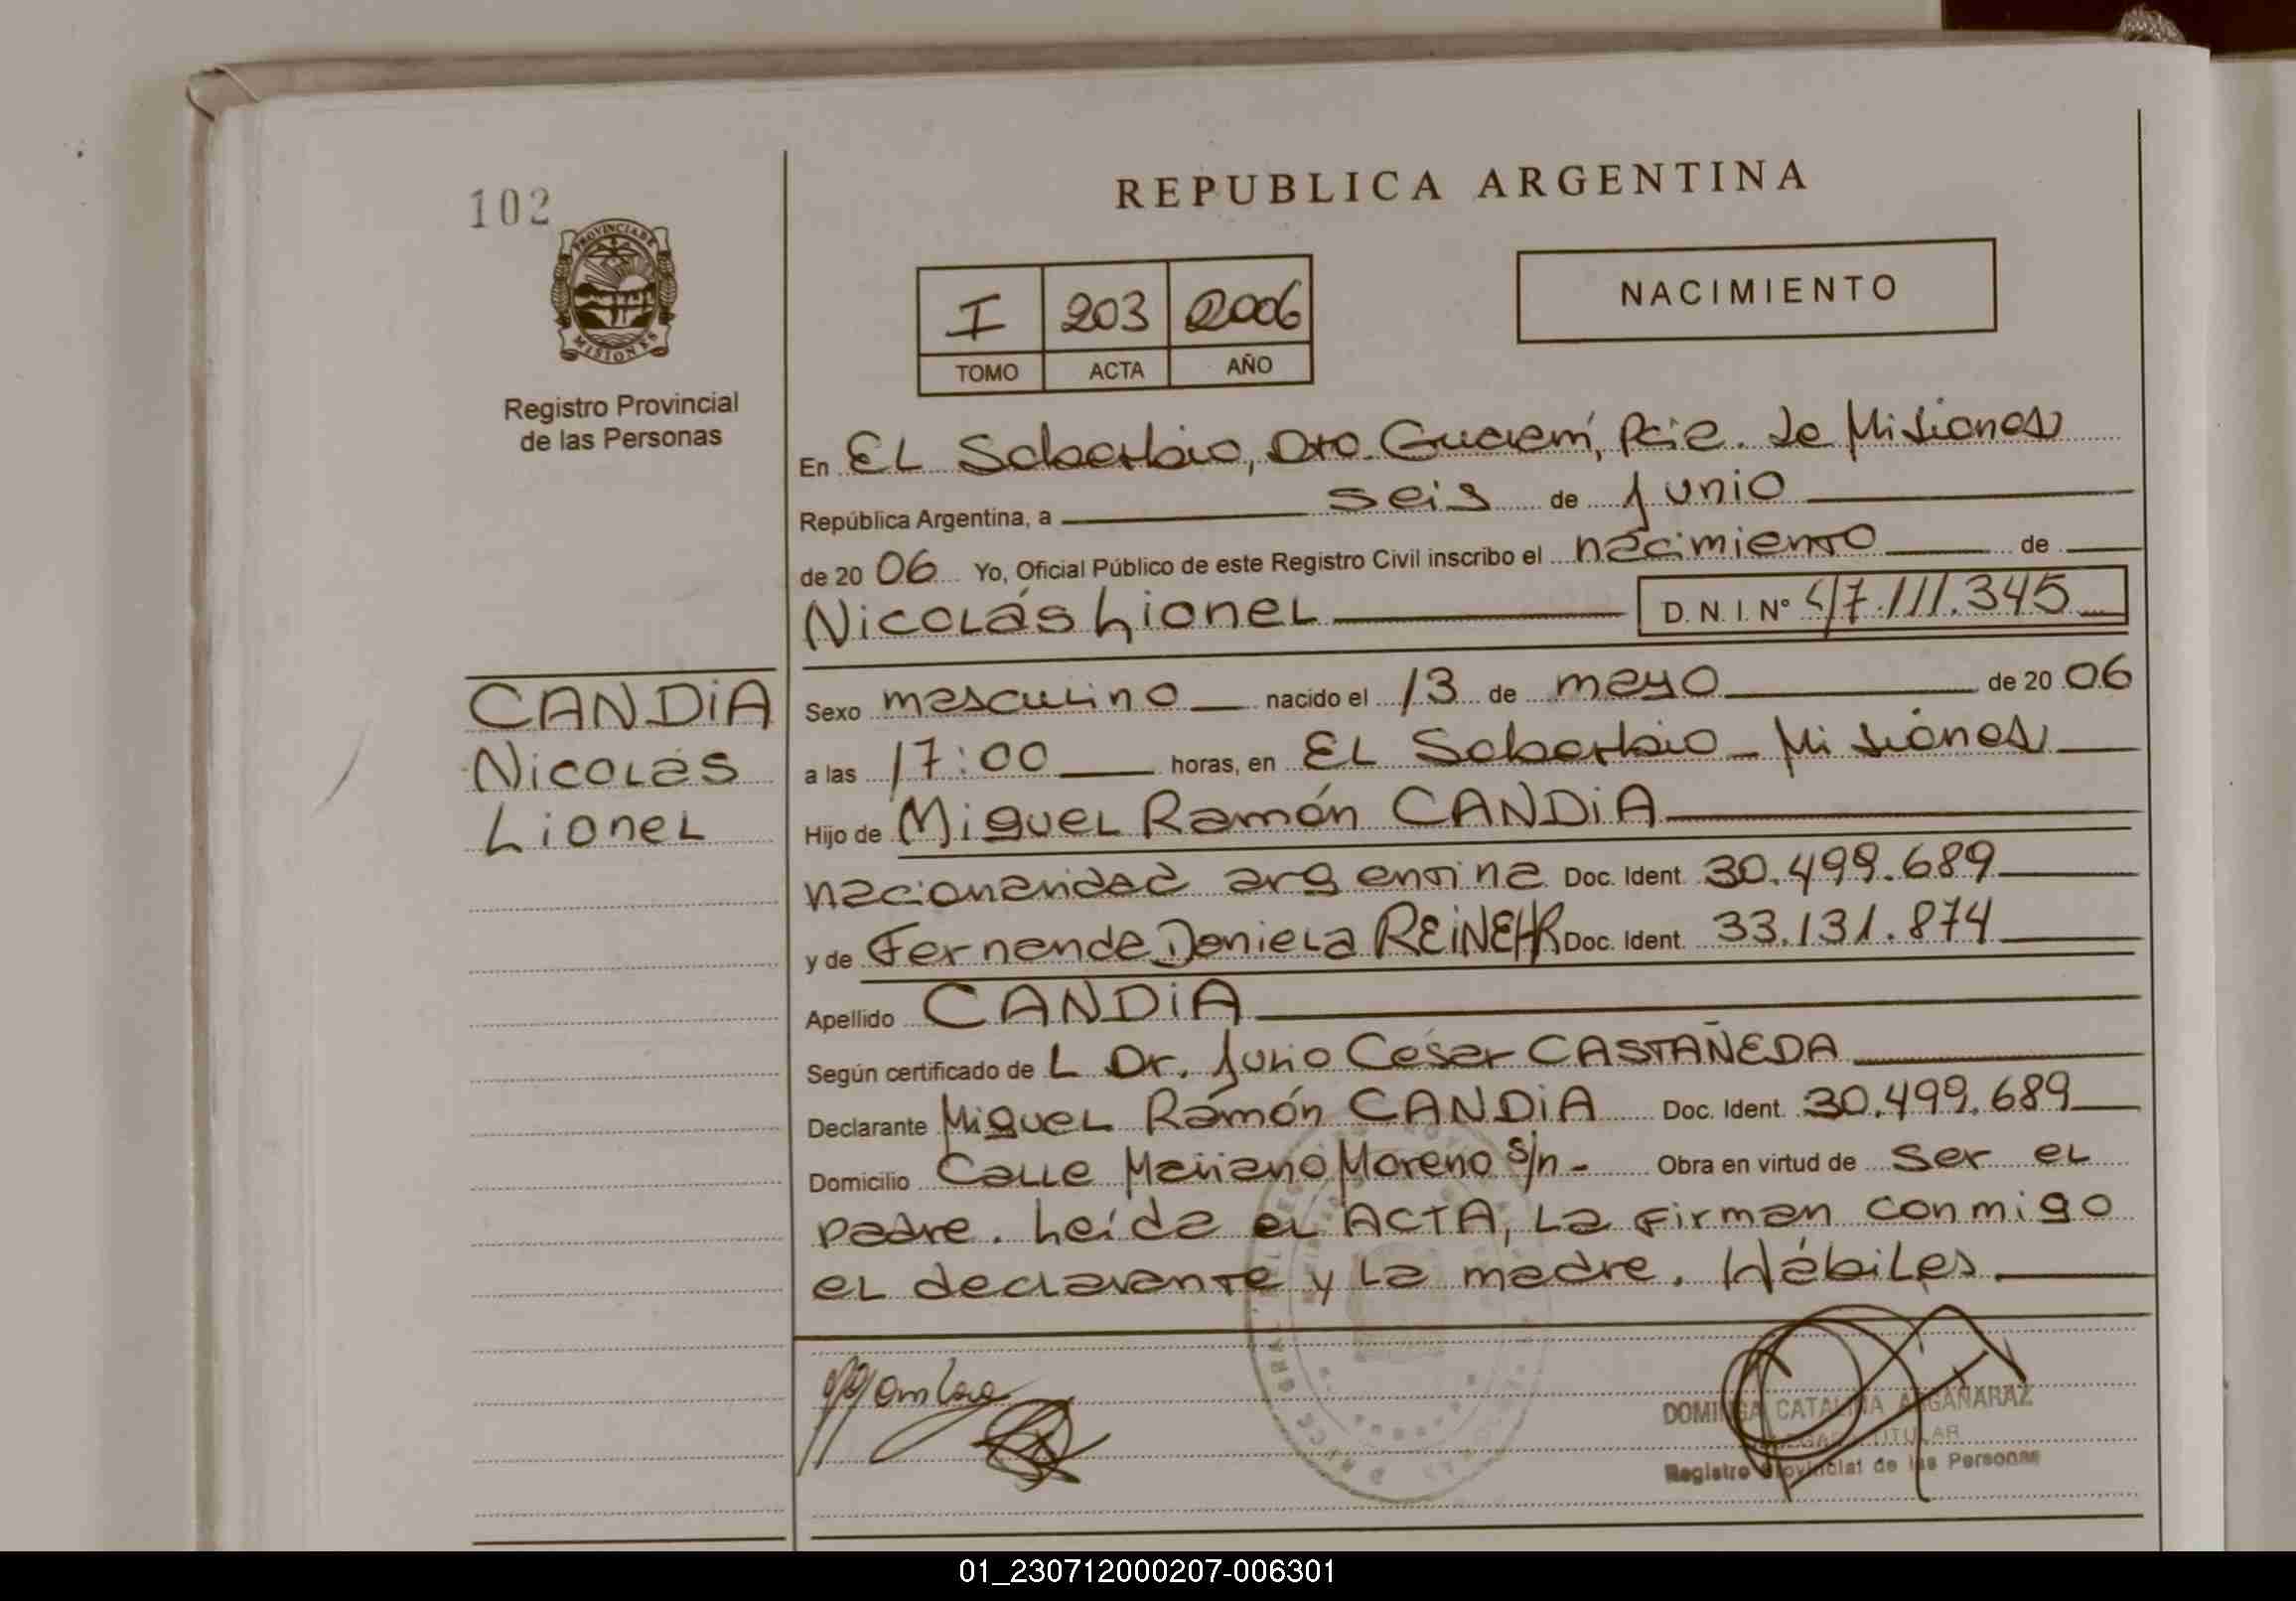 102
PROVINCIA DE
MISIONES
Registro Provincial
de las Personas
REPUBLICA ARGENTINA
I 203 2006
TOMO ACTA AÑO
NACIMIENTO
En EL Soberbio, Dto. Guaraní, Pcia. de Misiones
República Argentina, a seis de junio
de 20 06 Yo, Oficial Público de este Registro Civil inscribo el nacimiento de
Nicolás Lionel D.N.I. Nº 47.111.345
CANDIA
Nicolás
Lionel
Sexo masculino nacido el 13 de mayo de 20 06
a las 17:00 horas, en EL Soberbio - Misiones
Hijo de Miguel Ramón CANDIA
nacionalidad argentina Doc. Ident. 30.499.689
y de Fernanda Daniela REINEHR Doc. Ident. 33.131.874
Apellido CANDIA
Según certificado de L Dr. Julio César CASTAÑEDA
Declarante Miguel Ramón CANDIA Doc. Ident. 30.499.689
Domicilio Calle Mariano Moreno s/n - Obra en virtud de ser el
padre. Leída el ACTA, la firman conmigo
el declarante y la madre. Hábiles
DOMINGA CATALINA ARGAÑARAZ
TITULAR
Registro Provincial de las Personas
01_230712000207-006301